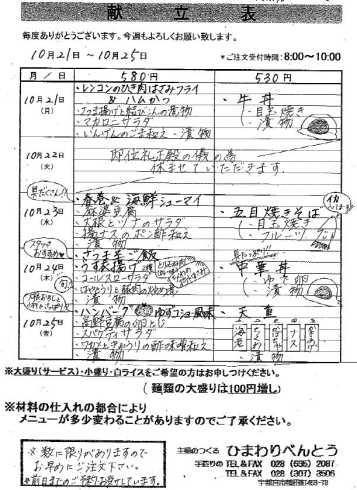 献立表
毎度ありがとうございます。今週もよろしくお願い致します。
10月21日～10月25日
＊ご注文受付時間:8:00～10:00
月 / 日
580円
530円
10月21日
(月)
・レンコンのひき肉はさみフライ
& ハムカツ
・さつま揚げと結びこんの煮物
・マカロニサラダ
・いんげんのごま和え・漬物
・牛丼
・目玉焼き
・漬物
10月22日
(火)
即位礼正殿の儀の為
休ませていただきます。
具だくさん!!
10月23日
(水)
・春巻 & 海鮮シューマイ
・麻婆豆腐
・大根とツナのサラダ
・揚ナスのポン酢和え
・漬物
・五目焼きそば
・目玉焼き
・フルーツ
スタッフ
おすすめ
10月24日
(木)
旬
・さつま芋ご飯
・コールスローサラダ
・漬物
・中華丼
・ゆで卵
・漬物
10月25日
(金)
・ハンバーグ
ゆずコショー風味
・高野豆腐の卵とじ
・スパゲティサラダ
・わかめときゅうりの酢味噌和え
・漬物
・天重
※大盛り(サービス)・小盛り・白ライスをご希望の方はお申しつけください。
( 麺類の大盛りは100円増し )
※材料の仕入れの都合により
メニューが多少変わることがありますのでご了承ください。
※数に限りがありますので
お早めにご注文下さい。
※前日までのご予約お受けしています。
主婦のつくる ひまわりべんとう
手造りの TEL&FAX 028 (635) 2087
TEL&FAX 028 (307) 3506